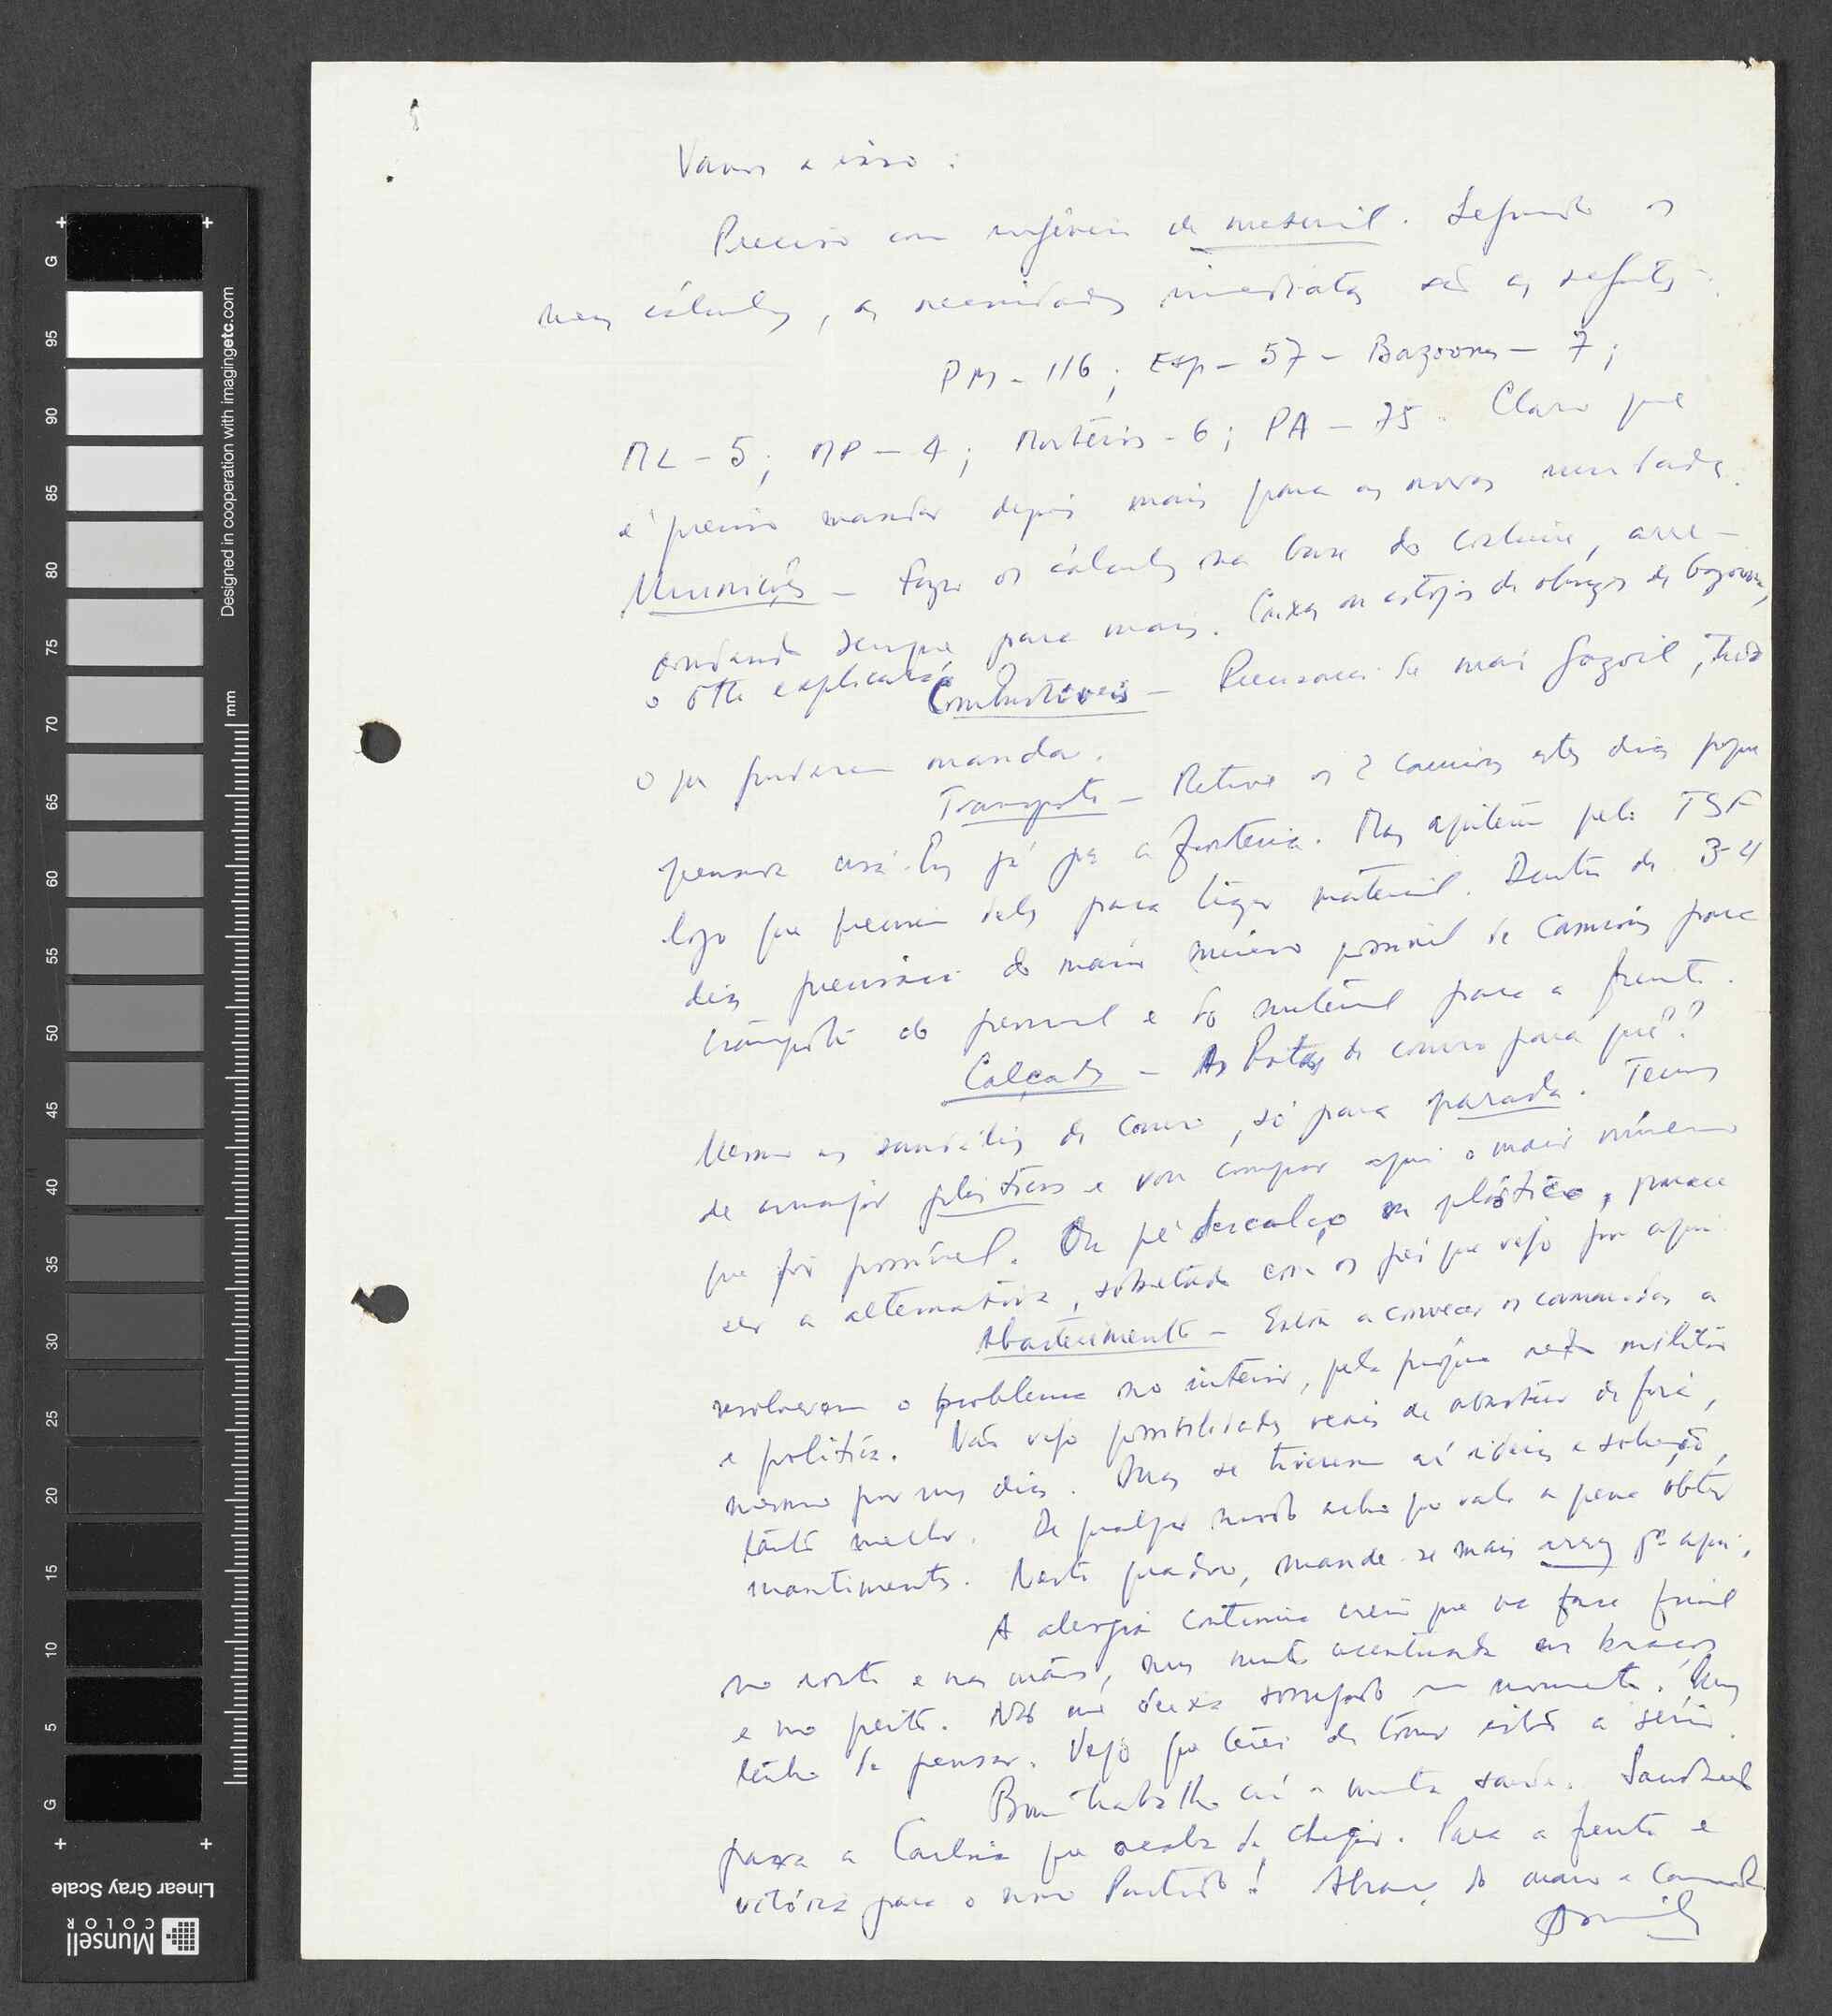 Vamos a isso:
Preciso com urgência de material. Segundo os
meus cálculos, as necessidades imediatas são as seguintes:
PM - 116; Esp - 57 - Bazookas - 7;
ML - 5; MP - 4; Morteiros - 6; PA - 75. Claro que
é preciso mandar depois mais para as novas unidades.
Munições - Faço os cálculos na base do costume, arre-
dondando sempre para mais. Caixas ou estojos de obuses de bazooka,
o explicará
Combustíveis - Precisamos de mais gazoil, tudo
o que puderem mandar.
Transporte - Retive os 2 camiões estes dias porque
pensava usá-los já para a fronteira. Mas apitem pela TSF
logo que precisem deles para trazer material. Dentro de 3-4
dias precisarei do maior número possível de camiões para
transporte do pessoal e do material para a frente.
Calçado - As botas de couro para quê??
Mesmo as sandálias de couro, só para parada. Temos
de arranjar plásticos e vou comprar aqui o maior número
que for possível. Ou pé descalço ou plástico, parece
ser a alternativa, sobretudo com os pés que vejo por aqui
Abastecimento - Estou a convencer os camaradas a
resolverem o problema no interior, pela própria militar
e política. Não vejo possibilidades reais de abastecer de fora,
mesmo por uns dias. Mas se tiverem aí ideias e solução,
tanto melhor. De qualquer modo acho que vale a pena obter
mantimentos. Neste quadro, mande-se mais arroz pª aqui.
A alergia continua creio que na fase final
no rosto e nas mãos, mas muito acentuada nos braços
e no peito. Não me deixa sossegado um momento. Mas
tenho de pensar. Vejo que terei de tomar isto a sério.
Bom trabalho aí e muita saúde. Saudades
para a que acaba de chegar. Para a frente e
vitória para o nosso Partido! Abraço do mano e camarada
Amílcar
Designed in cooperation with imagingetc.com
mm
G
95
90
85
80
75
70
65
60
55
50
45
40
35
30
25
20
15
10
5
G
Linear Gray Scale
Munsell
COLOR